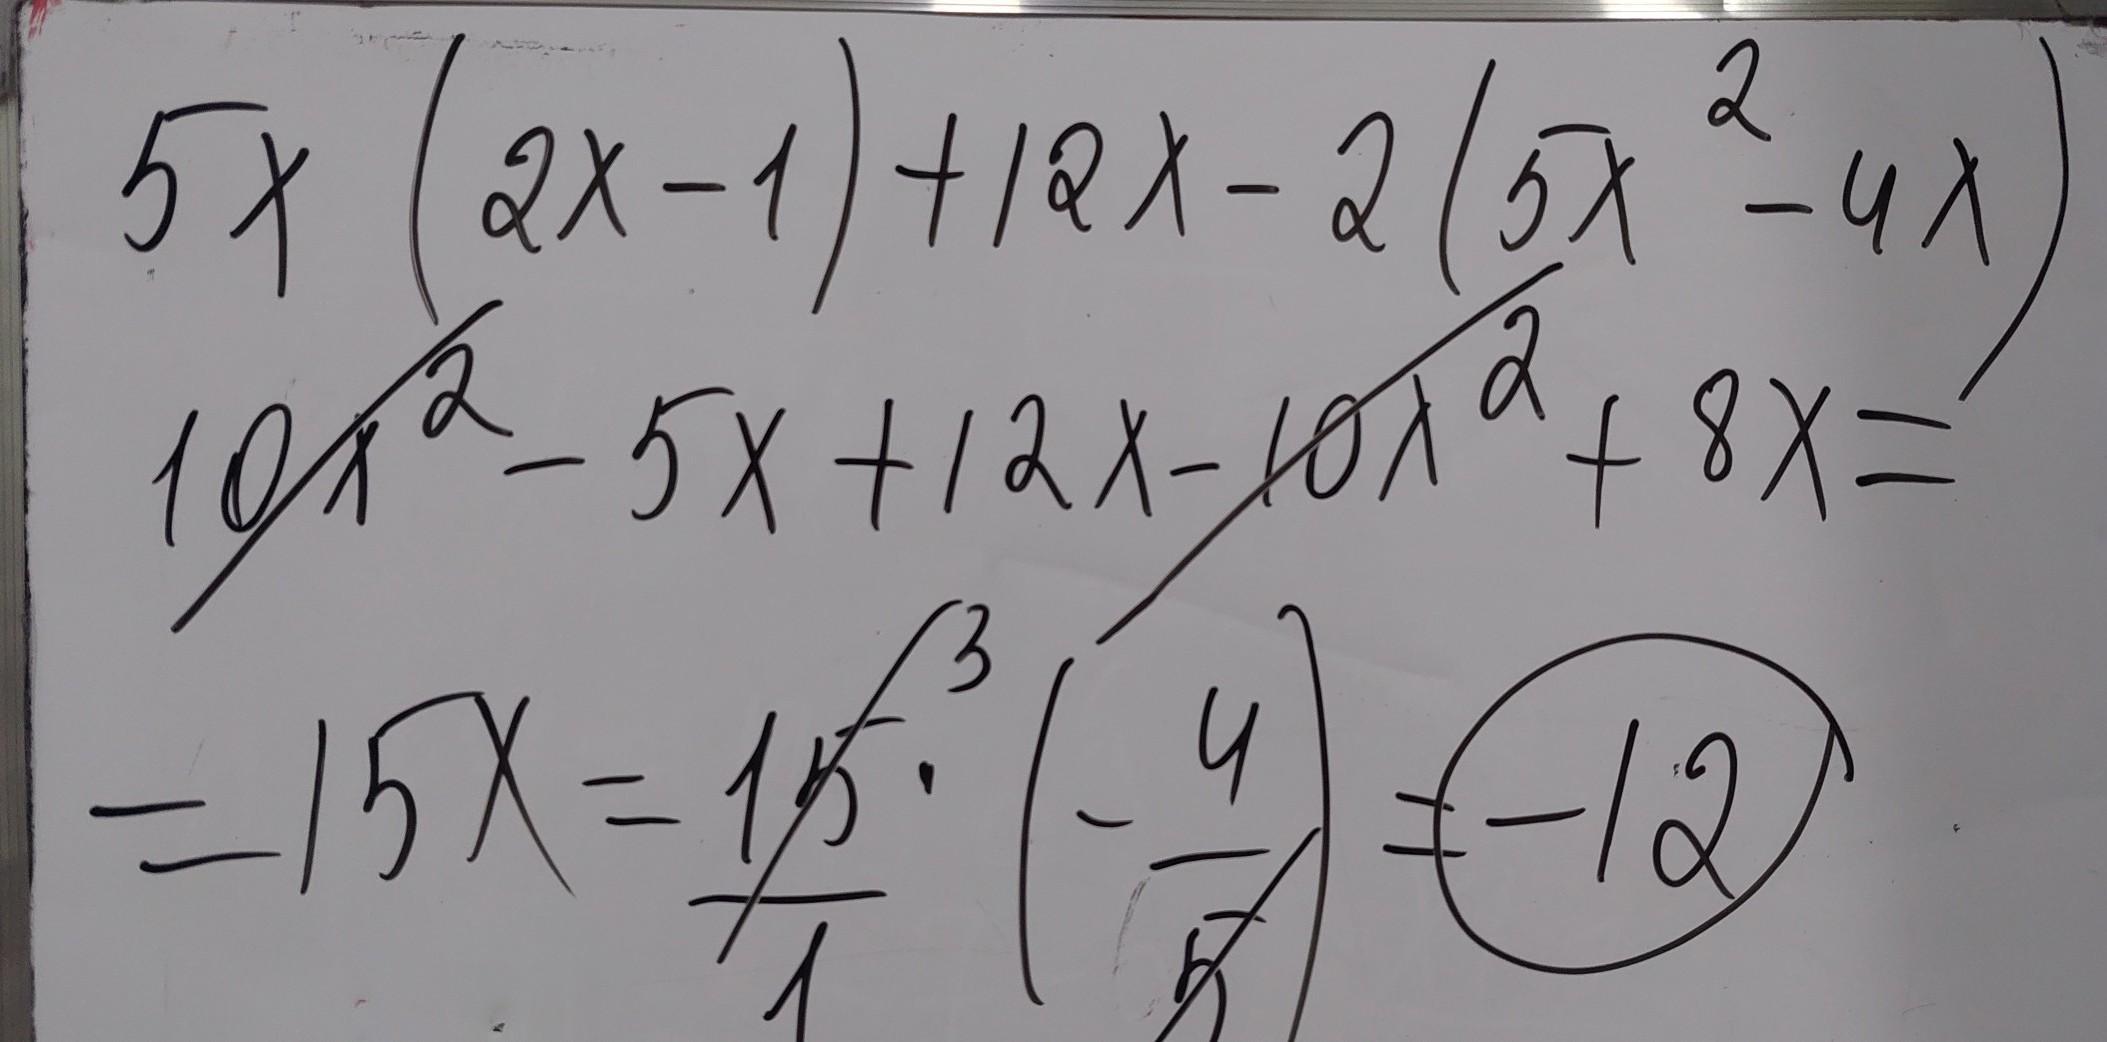 5x (2x-1)+12x-2(5x²-4x)
10x²-5x+12x-10x²+8x=
=15x=15/1³·(-4/5)=-12